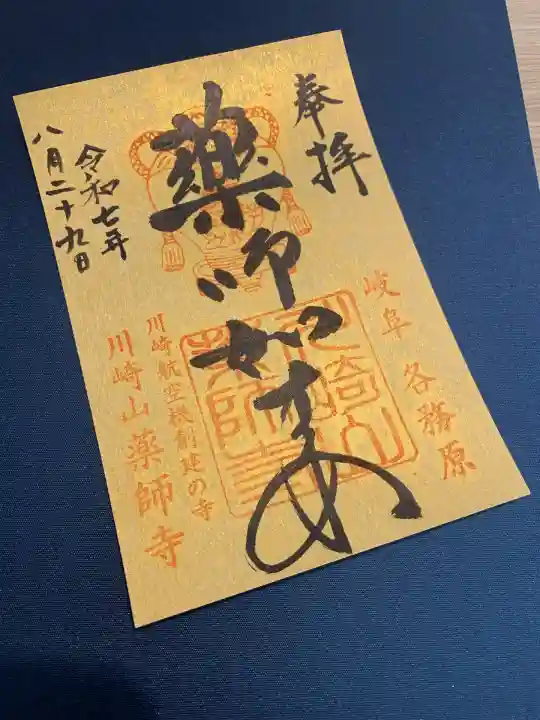 奉拝
岐阜 各務原
薬師如来
川崎航空機創建の寺
川崎山薬師寺
令和七年
八月二十九日